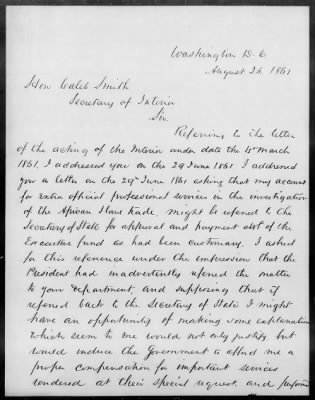 Washington D. C
August 26. 1861
Hon Caleb Smith
Secretary of Interior
Sir.
Referring to the letter
of the acting of the Interior under date the 15 March
1861, I addressed you on the 29 June 1861 I addressed
you a letter on the 29th June 1861 asking that my account
for extra official professional services in the investigation
of the African Slave trade, might be referred to the
Secretary of State for approval and payment out of the
Executive fund as had been customary. I asked
for this reference under the impression that the
President had inadvertently referred the matter
to your department, and supposing that if
referred back to the Secretary of State I might
have an opportunity of making some explanation
which seem to me would not only justify but
would induce the Government to afford me a
proper compensation for important services
rendered at their special request, and perform